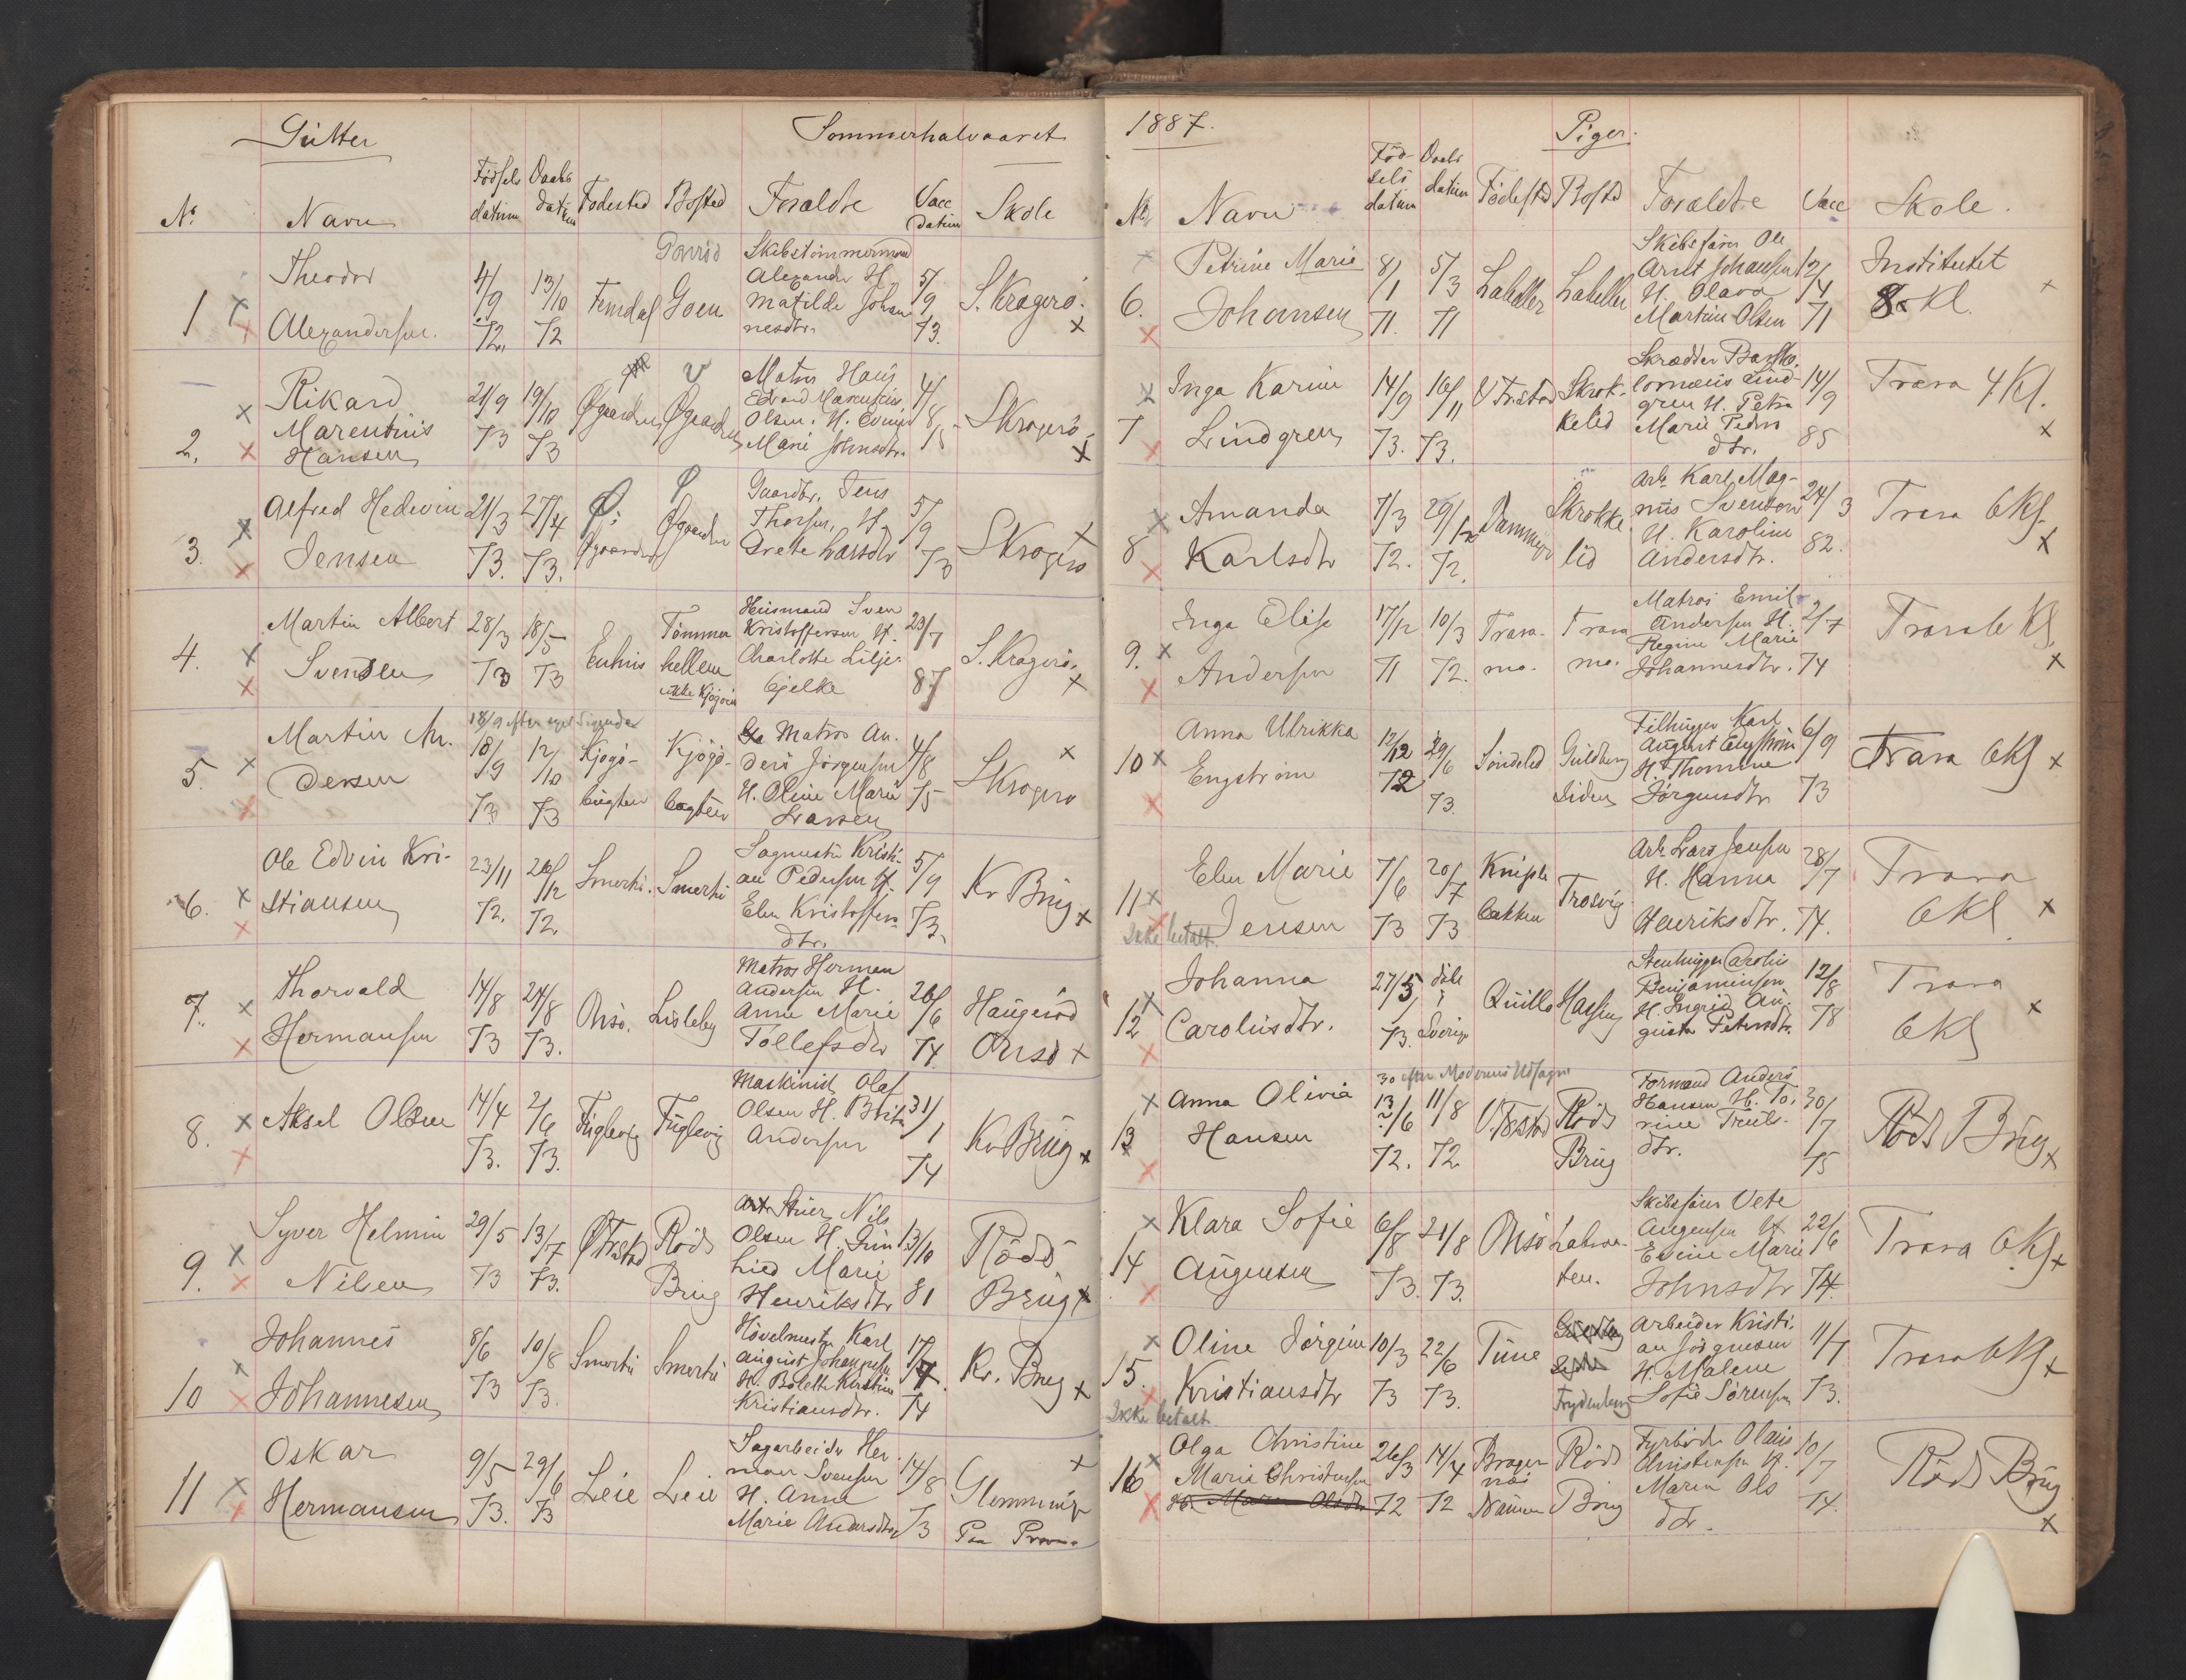 Gutter
Sommerhalvaaret
No
Navn
Fødsels datum
Daabs datum
Fødested
Bosted
Forældre
Vacc datum
Skole
1
Theodor
Alexandersen.
4/9 72.
13/10 72
Goen
Skibstømmermand
Alexander H.
Matilde Johan
nesdtr.
5/9 73.
S. Kragerö.
2.
Rikard
Marentius
Hansen
21/9 73
19/10 73
Øgaarden
Øgaarden
Matros Hans
Edvard Marentius
Olsen. H.
Marie Johnsdtr.
4/8 75
S Kragerö
3.
Alfred Hedevin
Jensen
21/3 73.
27/4 73.
Ø:
Øgaarden
Øgaarden
Gaardbr. Jens
Thorsen, H.
Grete Larsdtr
5/9 73
S Kragerö
4.
Martin Albert
Svendsen
28/3 73
18/5 73
Enhus
Tømmer
hellen
ikke Kjøgöen
Husmand Sven
Kristoffersen H.
Charlotte Lilje
bjelke
23/7 87
S. Kragerö.
5.
Martin An.
dersen
18/9 efter eget Sigende
18/9 73
12/10 73
Kjøgö-
bugten
Kjøgö-
bugten
Matros An.
ders Jörgensen
H. Oline Marie
Larsen
4/8 75
S Kragerö
6.
Ole Edvin Kri-
stiansen
23/11 72.
26/12 72.
Smertu.
Smertu
Sagmester Kristi-
an Pedersen H.
Elen Kristoffers-
dtr.
5/9 73.
Kr Brug
7.
Thorvald
Hermansen
14/8 73
24/8 73.
Onsö.
Lisleby
Matros Herman
Andersen H.
Anne Marie
Tollefsdtr
26/6 74.
Haugeröd
Onsö
8.
Aksel Olsen
14/4 73.
2/6 73.
Fuglevig
Fuglevig
Maskinist Olaf
Olsen H. Brita
Andersen
31/1 74
Kr Brug
9.
Syver Helmin
Nilsen
29/5 73
13/7 73.
Ø Frstad
Röds
Brug
Stuer Nils
Olsen H. Gun
hild Marie
Henriksdtr
13/10 81
Röds
Brug
10
Johannes
Johannesen
8/6 73
10/8 73.
Smertu
Smertu
Hövelmester Karl
August Johannesen
H. Bolette Kirstine
Kristiansdtr.
17/7 74
Kr. Brug
11
Oskar
Hermansen
9/5 73.
29/6 73
Leie
Leie
Sagarbeider Her
man Svensen
H. Anne
Marie Andersdtr
14/8 73
Glemminge
Paa Prøve
1887.
Piger.
No
Navn
Fød-
sels
datum
Daabs
datum
Fødested
Bosted
Forældre
Vacc
Skole.
6.
Petrine Marie
Johansen
8/1 71.
5/3 71
Lahellen
Lahellen
Skibsfører Ole
Arnt Johansen
H. Olava
Martine Olsen
12/4 71
Institutet
8 Kl.
7
Inga Karine
Lindgren
14/9 73.
16/11 73.
V Frstad
Skrok-
kelid
Skrædder
Lind-
gren H. Petra
Marie Peders
dtr.
14/9 85
Trara 4 Kl.
8
Amanda
Karlsdtr
7/3 72.
29/12 72.
Skrokke
lid
Arb. Karl Mag-
nus Svenson
H. Karoline
Andersdtr.
24/3 82.
Trara 6 Kl.
9.
Inga Elise
Andersen
17/12 71
10/3 72.
Trara-
mo.
Trara
mo.
Matros Emil
Andersen H.
Regine Marie
Johannesdtr.
2/7 74
Trara 6 Kl.
10
Anna Ulrikka
Engström
12/12 72
29/6 73.
Söndeled
Guldberg
siden
Filhugger Karl
August Engström
H. Thomine
Jörgensdtr
6/9 73
Trara 6 Kl
11
Ikke betalt.
Elen Marie
Jensen
7/6 73
20/7 73
Kniple
bakken
Trosvig
Arb. Lars Jensen
H. Hanna
Henriksdtr.
28/7 74.
Trara
6 Kl
12
Johanna
Carolusdtr.
27/5 73.
döbt
i
Sverige
Quille
Stenhugger Carolus
Benjaminsen
H. Ingrid Au-
gusta Petersdtr.
12/8 78
Trara
6 Kl
13
Anna Olivia
Hansen
30 efter Moderens Udsagn
13/6 72.
11/8 72
V. Frstad
Röds
Brug
Formand Anders
Hansen H. To.
rine Truls-
dtr.
30/7 75
Röds Brug
14
Klara Sofie
Augensen
6/8 73.
24/8 73.
Onsö
Skibsfører Vete
Augensen H.
Evine Marie
Johnsdtr
22/6 74.
Trara 6 Kl
15.
Oline Jörgine
Kristiansdtr
10/3 73
22/6 73.
Tune
Frydenberg
Arbeider Kristi.
an Jörgensen
H. Malene
Sofie Sörensen
11/7 73.
Trara 6 Kl
Ikke betalt.
16
Olga Christine
Marie Christensen
26/3 72
14/4 72
Brager
næs
Drammen
Röds
Brug
Fyrböder Olaus
Christensen H.
Maren Ols
dtr.
10/7 74.
Röds Brug